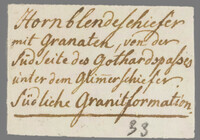 Hornblendeschiefer
mit Granaten, von der
Südseite des Gothardspaßes
unter dem Glimerschiefer
Südliche Granitformation
33